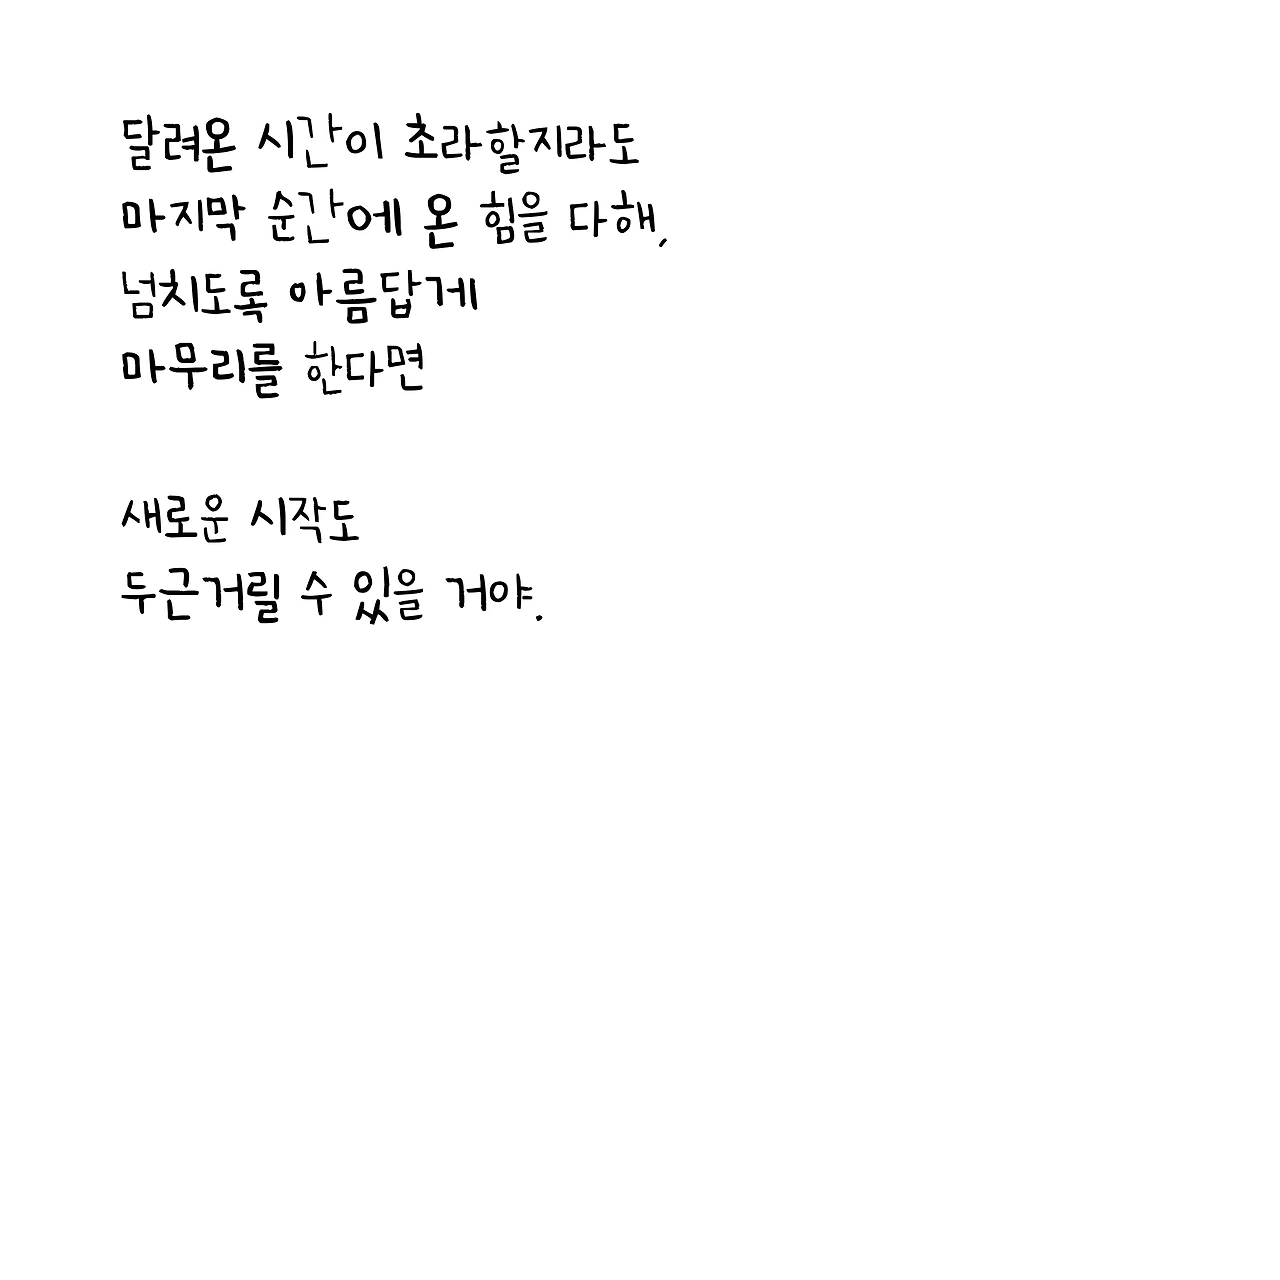 달려온 시간이 초라할지라도
마지막 순간에 온 힘을 다해,
넘치도록 아름답게
마무리를 한다면
새로운 시작도
두근거릴 수 있을 거야.